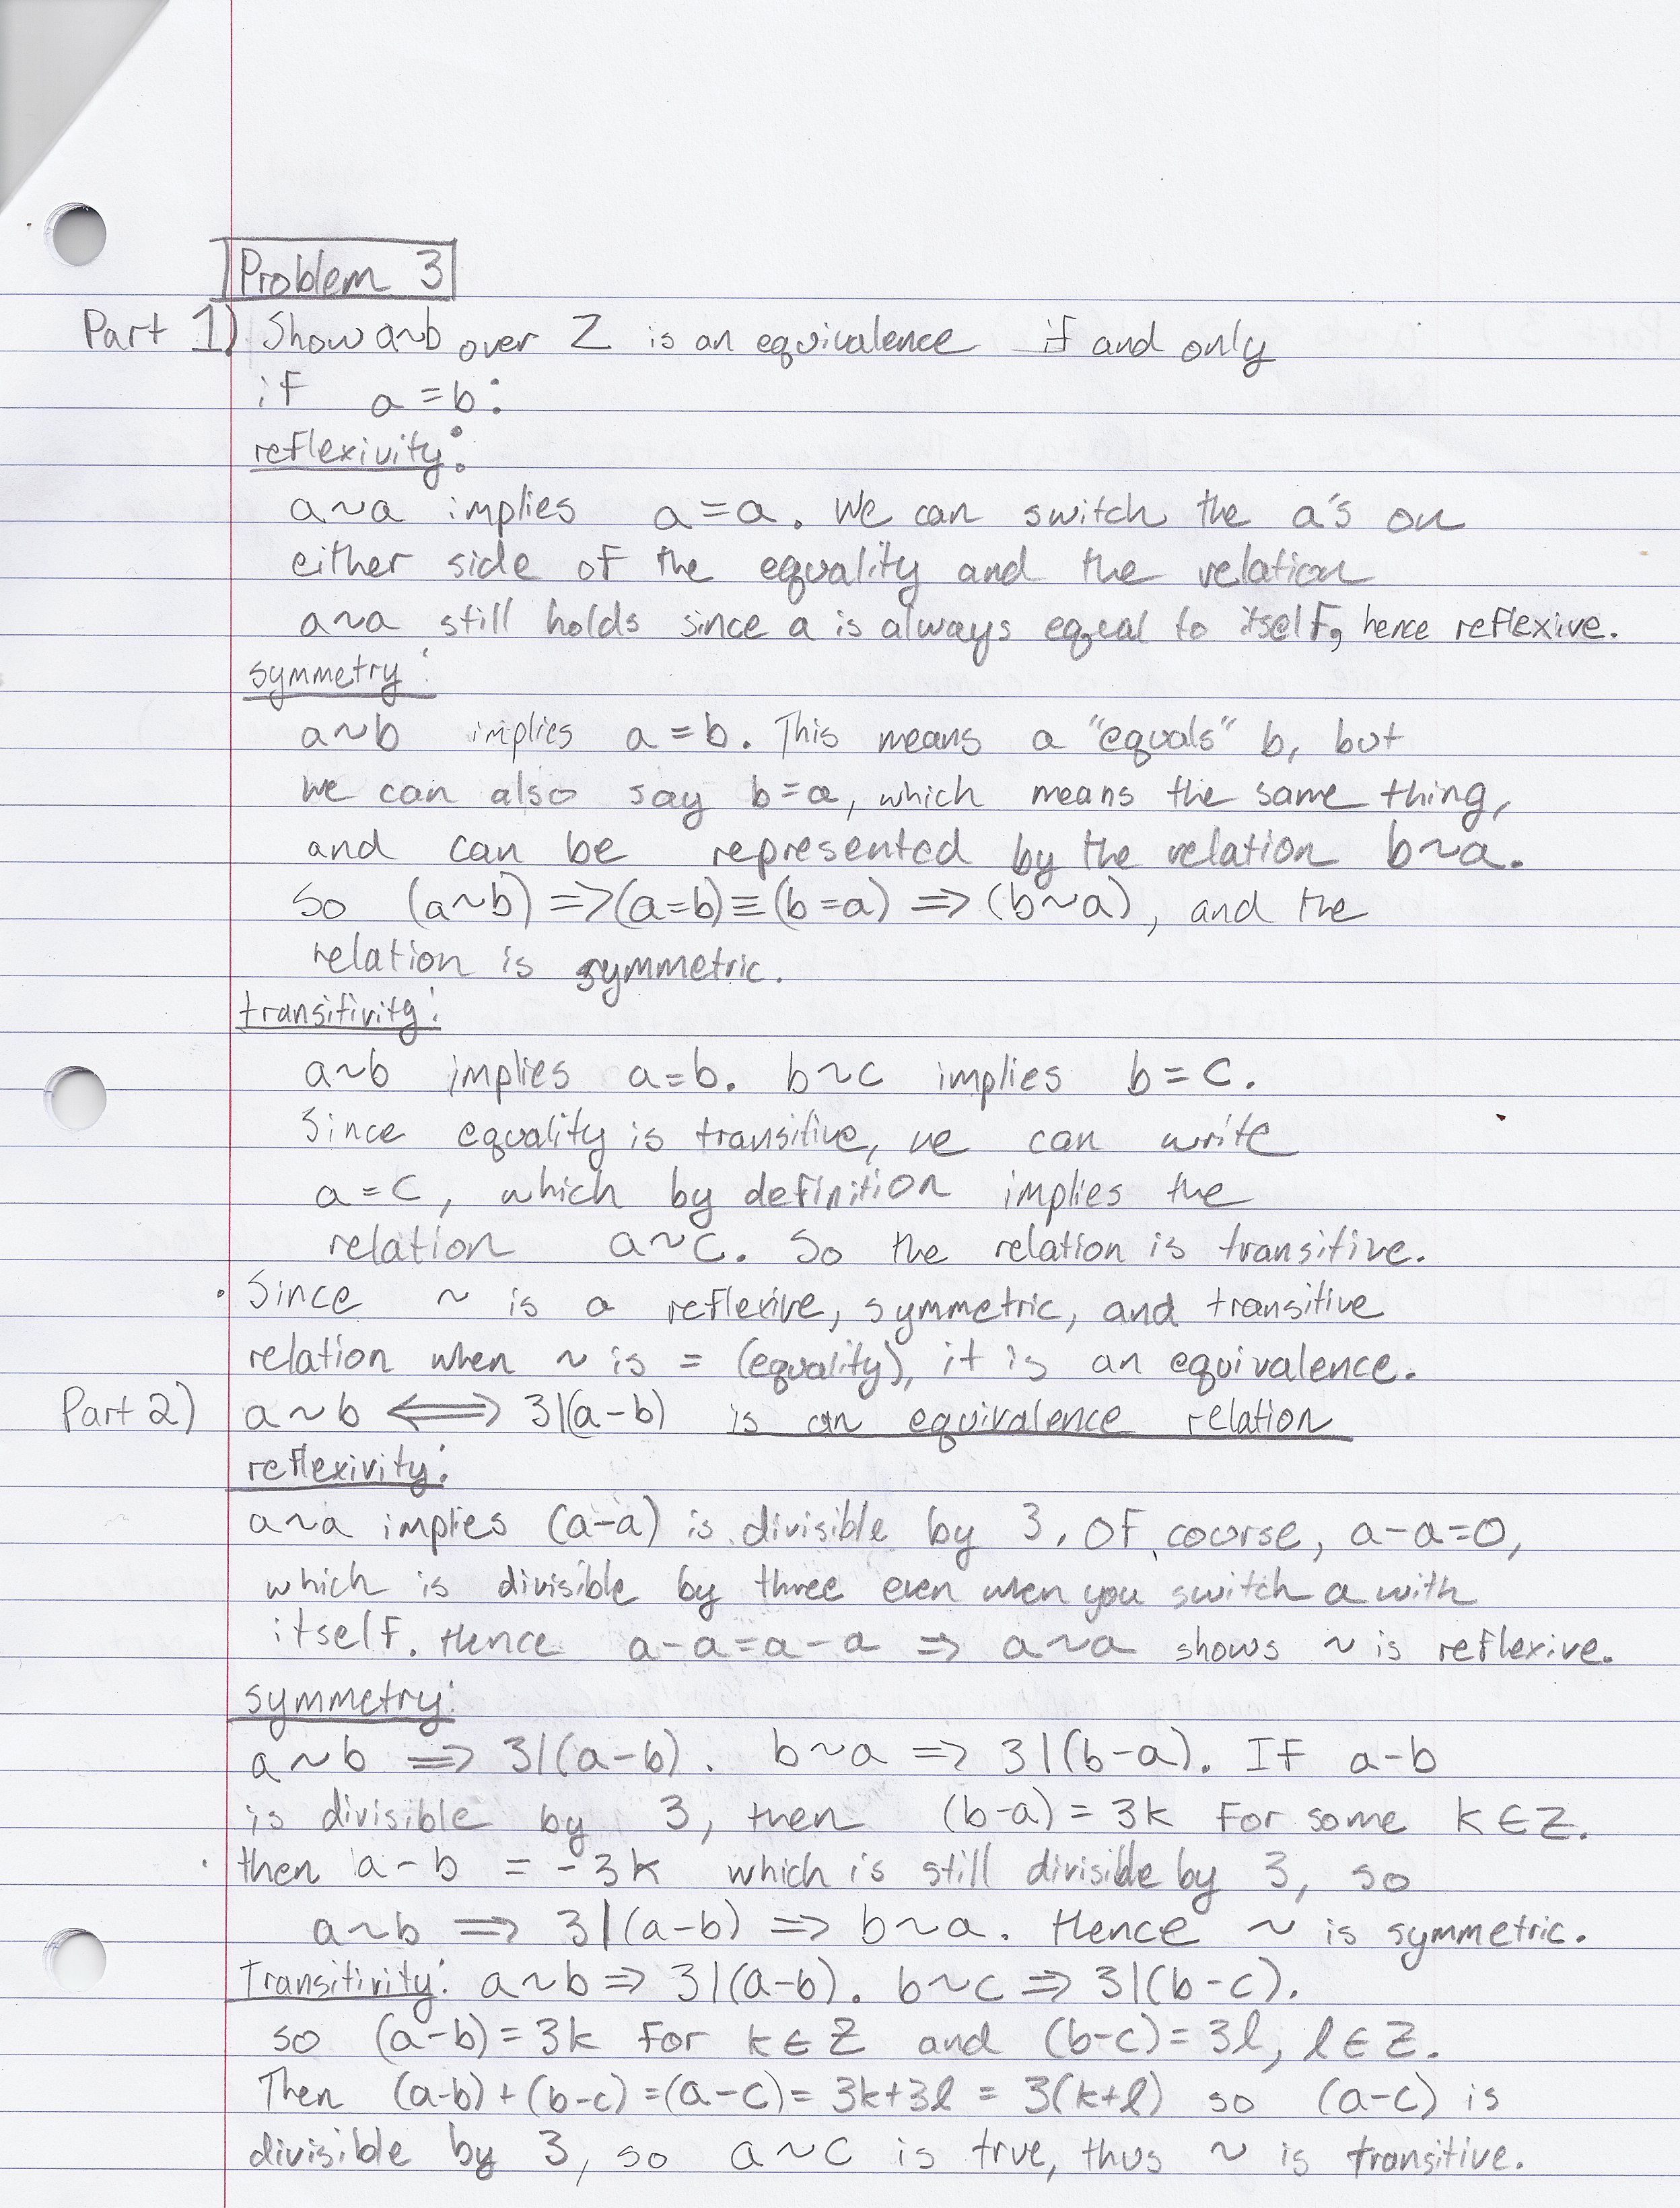 Problem 3
Part 1) Show a~b over Z is an equivalence if and only
if a = b:
reflexivity:
a~a implies a=a. We can switch the a's on
either side of the equality and the relation
a~a still holds since a is always equal to itself, hence reflexive.
symmetry:
a~b implies a = b. This means a "equals" b, but
we can also say b=a, which means the same thing,
and can be represented by the relation b~a.
So (a~b) => (a=b) ≡ (b=a) => (b~a), and the
relation is symmetric.
transitivity:
a~b implies a=b. b~c implies b = c.
Since equality is transitive, we can write
a = c, which by definition implies the
relation a~c. So the relation is transitive.
• Since ~ is a reflexive, symmetric, and transitive
relation when ~ is = (equality), it is an equivalence.
Part 2) a ~ b <=> 3|(a-b) is an equivalence relation
reflexivity:
a~a implies (a-a) is divisible by 3. Of course, a-a=0,
which is divisible by three even when you switch a with
itself. Hence a-a=a-a => a~a shows ~ is reflexive.
symmetry:
a~b => 3|(a-b). b~a => 3|(b-a). If a-b
is divisible by 3, then (b-a) = 3k for some k ∈ Z.
then a-b = -3k which is still divisible by 3, so
a~b => 3|(a-b) => b~a. Hence ~ is symmetric.
Transitivity: a~b => 3|(a-b). b~c => 3|(b-c).
so (a-b) = 3k for k ∈ Z and (b-c) = 3l, l ∈ Z.
Then (a-b)+(b-c)=(a-c)= 3k+3l = 3(k+l) so (a-c) is
divisible by 3, so a~c is true, thus ~ is transitive.